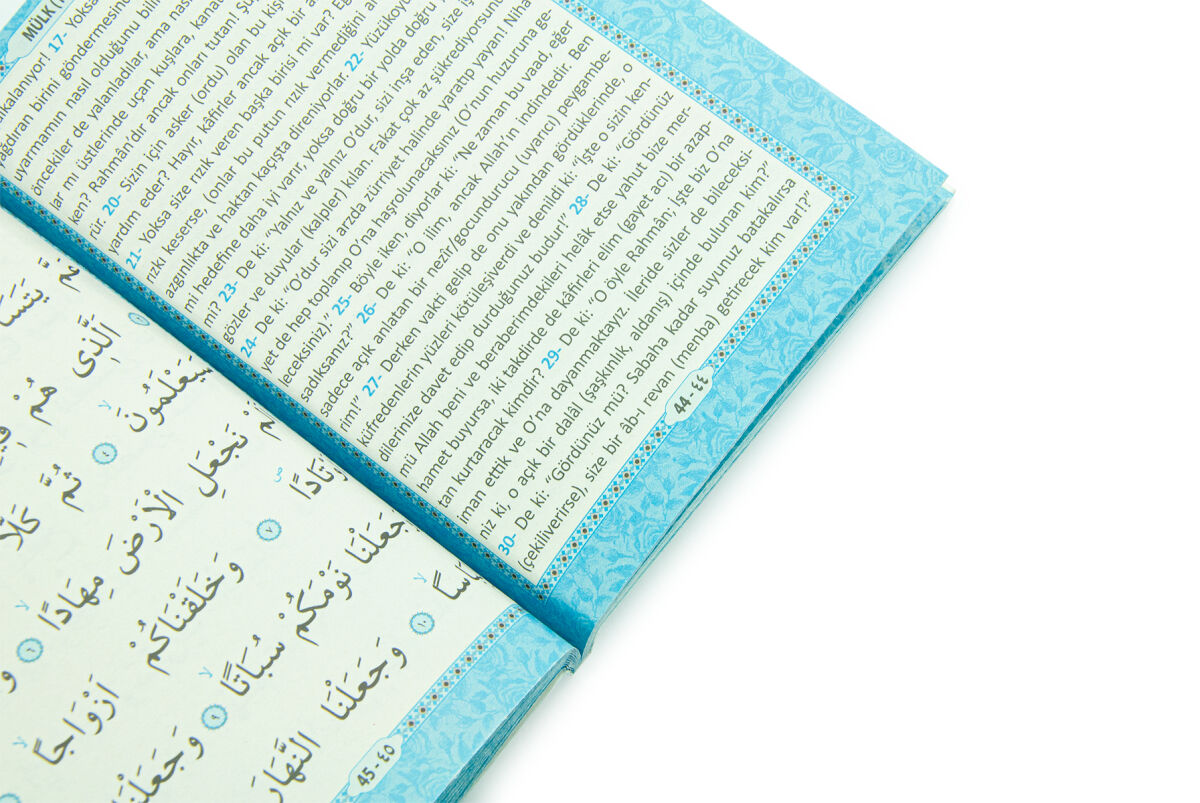 MÜLK (
kalanıyor! 17- Yoksa
ağdıran birini göndermesinde
uyarmamın nasıl olduğunu bili
öncekiler de yalanladılar, ama nası
lar mı üstlerinde uçan kuşlara, kanat
ken? Rahmân'dır ancak onları tutan! Şü
rür. 20- Sizin için asker (ordu) olan bu kiş
yardım eder? Hayır, kâfirler ancak açık bir a
21- Yoksa size rızık veren başka birisi mi var? Eğ
rızkı keserse, (onlar bu putun rızık vermediğini an
azgınlıkta ve haktan kaçışta direniyorlar. 22- Yüzükoyu
mi hedefine daha iyi varır, yoksa doğru bir yolda doğru
mi? 23- De ki: “Yalnız ve yalnız O'dur, sizi inşa eden, size iş
gözler ve duyular (kalpler) kılan. Fakat çok az şükrediyorsunu
24- De ki: “O'dur sizi arzda zürriyet halinde yaratıp yayan! Niha
yet de hep toplanıp O'na haşrolunacaksınız (O'nun huzuruna ge-
leceksiniz).” 25- Böyle iken, diyorlar ki: “Ne zaman bu vaad, eğer
sadıksanız?” 26- De ki: “O ilim, ancak Allah'ın indindedir. Ben
sadece açık anlatan bir nezîr/gocundurucu (uyarıcı) peygambe-
rim!” 27- Derken vakti gelip de onu yakından gördüklerinde, o
küfredenlerin yüzleri kötüleşiverdi ve denildi ki: “İşte o sizin ken-
dilerinize davet edip durduğunuz budur!” 28- De ki: “Gördünüz
mü Allah beni ve beraberimdekileri helâk etse yahut bize mer-
hamet buyursa, iki takdirde de kâfirleri elim (gayet acı) bir azap-
tan kurtaracak kimdir? 29- De ki: “O öyle Rahmân; işte biz O'na
iman ettik ve O'na dayanmaktayız. İleride sizler de bileceksi-
niz ki, o açık bir dalâl (şaşkınlık, aldanış) içinde bulunan kim?”
30- De ki: “Gördünüz mü? Sabaha kadar suyunuz batakalırsa
(çekiliverirse), size bir âb-ı revan (menba) getirecek kim var!?”
44 - ٤٤
اَلَّذٖى هُمْ
سَيَعْلَمُونَ ﴿٤﴾ ثُمَّ كَلَّا
نَجْعَلِ الْاَرْضَ مِهَادًا ﴿٦﴾ و
﴿٧﴾ وَخَلَقْنَاكُمْ اَزْوَاجًا
جَعَلْنَا نَوْمَكُمْ سُبَاتًا ﴿٩﴾ وَجَعَلْنَا
﴿١٠﴾ وَجَعَلْنَا النَّهَارَ
45 - ٤٥